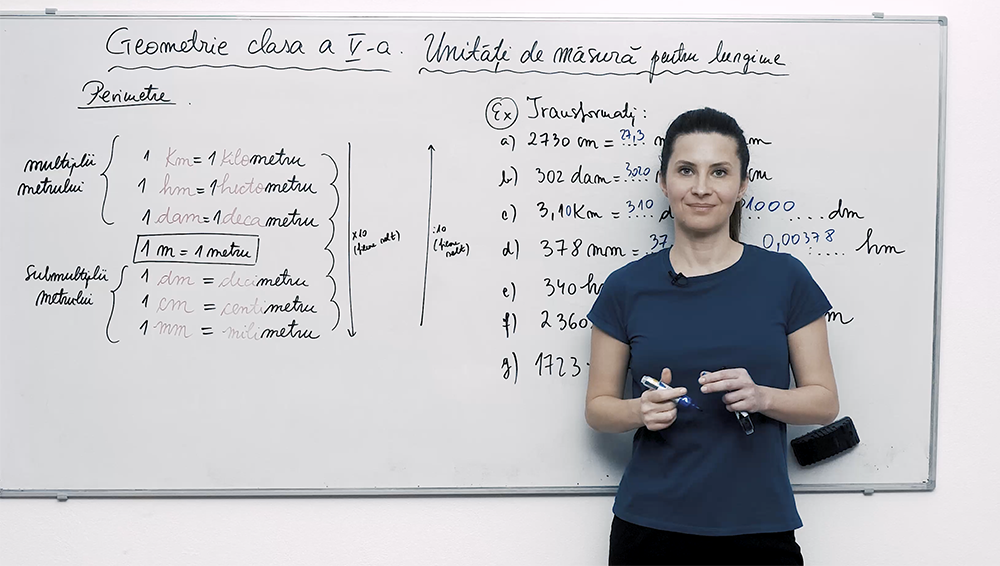 Geometrie clasa a V-a. Unități de măsură pentru lungime
Perimetre.
multiplii
metrului
1 Km = 1 kilometru
1 hm = 1 hectometru
1 dam = 1 decametru
1 m = 1 metru
submultiplii
metrului
1 dm = decimetru
1 cm = centimetru
1 mm = milimetru
x10
:10
Ex Transformați:
a) 2730 cm = 27,3 m
b) 302 dam = 3020 cm
c) 3,10 Km = 310 d 1000 dm
d) 378 mm = 37 0,00378 hm
e) 340 h
f) 2360 m
g) 1723